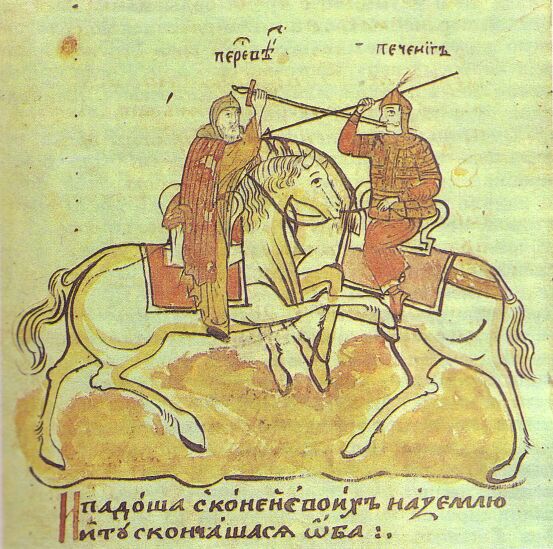 пере́вѣ́т
печені́гъ
И падо́ша с коне́й свои́хъ на зе́млю
и҆ тꙋ̀ сконча́шася ѿ́ба :.